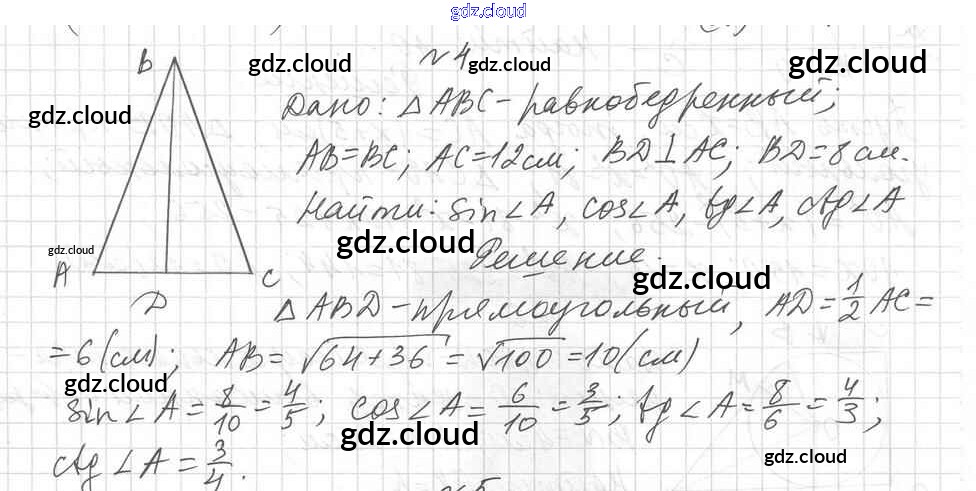 gdz.cloud
N4
B
gdz.cloud gdz.cloud gdz.cloud
Дано: △ABC - равнобедренный;
gdz.cloud
AB=BC; AC=12см; BD⊥AC; BD=8см.
Найти: sin∠A, cos∠A, tg∠A, ctg∠A
gdz.cloud gdz.cloud
Решение.
A C
gdz.cloud
D
△ABD - прямоугольный, AD=1/2 AC=
=6(см); AB=√64+36=√100=10(см)
gdz.cloud
sin∠A=8/10=4/5; cos∠A=6/10=3/5; tg∠A=8/6=4/3;
gdz.cloud
ctg∠A=3/4.
gdz.cloud
N5